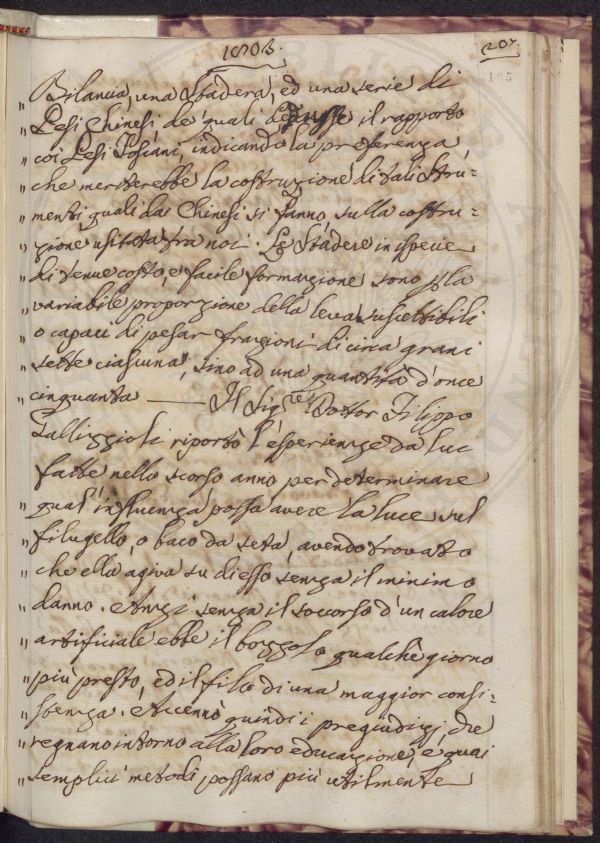 1803.
207
195
„ Bilancia, una Stadera, ed una serie di
„ Pesi Chinesi de quali dedusse il rapporto
„ coi Pesi Toscani, indicando la preferenza,
„ che meriterebbe la costruzione di tali Stru-
„ menti quali dai Chinesi si fanno sulla costru-
„ zione usitata fra noi. Le Stadere in ispecie
„ di tenue costo, e facile formazione sono p la
„ variabile proporzione della leva suscettibili
„ o capaci di pesar frazioni di circa grani
„ sette ciascuna, sino ad una quantità d'once
„ cinquanta —— Il Sigre Dottor Filippo
Gallizzioli riportò l'esperienze da lui
fatte nello scorso anno per determinare
„ qual'influenza possa avere la luce sul
„ filugello, o baco da seta, avendo trovato
„ che ella agiva su di esso senza il minimo
„ danno. Anzi senza il soccorso d'un calore
„ artificiale ebbe il bozzolo qualche giorno
„ più presto, ed il filo di una maggior consi-
„ stenza. Accennò quindi i pregiudizj che
„ regnano intorno alla loro educazione, e quai
„ semplici metodi possano più utilmente